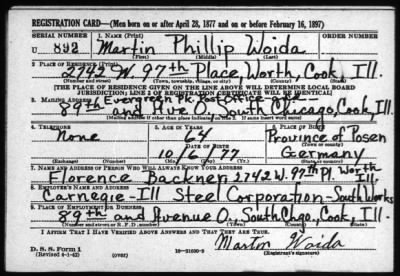 REGISTRATION CARD—(Men born on or after April 28, 1877 and on or before February 16, 1897)
SERIAL NUMBER 1. NAME (Print) ORDER NUMBER
U 892 Martin Phillip Woida
(First) (Middle) (Last)
2. PLACE OF RESIDENCE (Print)
2742 W. 97th Place, Worth, Cook, Ill.
(Number and street) (Town, township, village, or city) (County) (State)
[THE PLACE OF RESIDENCE GIVEN ON THE LINE ABOVE WILL DETERMINE LOCAL BOARD
JURISDICTION; LINE 2 OF REGISTRATION CERTIFICATE WILL BE IDENTICAL]
Evergreen Pk. Post Office
3. MAILING ADDRESS
89th and Ave O. South Chicago, Cook, Ill.
[Mailing address if other than place indicated on line 2. If same insert word same]
4. TELEPHONE 5. AGE IN YEARS 6. PLACE OF BIRTH
None 64 Province of Posen
DATE OF BIRTH (Town or county)
10 16 77 Germany
(Exchange) (Number) (Mo.) (Day) (Yr.) (State or country)
7. NAME AND ADDRESS OF PERSON WHO WILL ALWAYS KNOW YOUR ADDRESS Worth
Florence Backner 2742 W. 97th Pl.
8. EMPLOYER'S NAME AND ADDRESS
Carnegie-Ill Steel Corporation-South Works
9. PLACE OF EMPLOYMENT OR BUSINESS
89th and Avenue O., South Chgo., Cook, Ill.
(Number and street or R. F. D. number) (Town) (County) (State)
I AFFIRM THAT I HAVE VERIFIED ABOVE ANSWERS AND THAT THEY ARE TRUE.
D. S. S. Form 1 Martin Woida
(Revised 4-1-42) (over) 16—21630-2 (Registrant's signature)